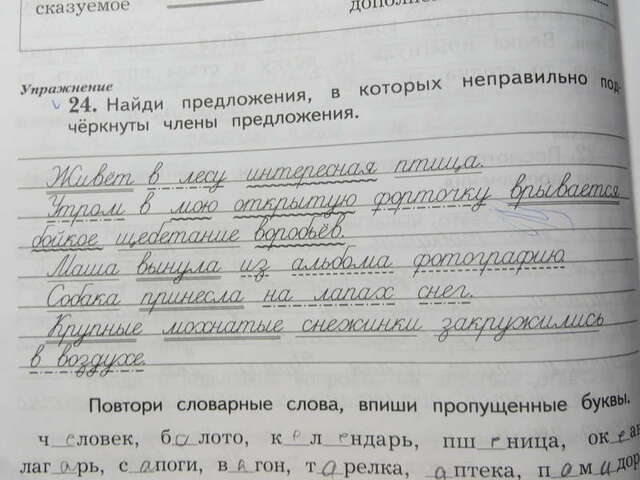 сказуемое
Упражнение
24. Найди предложения, в которых неправильно под-
чёркнуты члены предложения.
Живёт в лесу интересная птица.
Утром в мою открытую форточку врывается
бойкое щебетание воробьёв.
Маша вынула из альбома фотографию
Собака принесла на лапах снег.
Крупные мохнатые снежинки закружились
в воздухе.
Повтори словарные слова, впиши пропущенные буквы.
человек, болото, календарь, пшеница, океан
лагарь, сапоги, вагон, тарелка, аптека, помидор